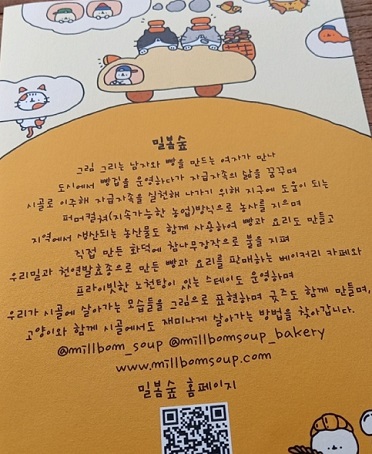 밀봄숲
그림 그리는 남자와 빵을 만드는 여자가 만나
도시에서 빵집을 운영하다가 자급자족의 삶을 꿈꾸며
시골로 이주해 자급자족을 실천해 나가기 위해 지구에 도움이 되는
퍼머컬쳐(지속가능한 농업)방식으로 농사를 지으며
지역에서 생산되는 농산물도 함께 사용하여 빵과 요리도 만들고
직접 만든 화덕에 참나무장작으로 불을 지펴
우리밀과 천연발효종으로 만든 빵과 요리를 판매하는 베이커리 카페와
프라이빗한 노천탕이 있는 스테이도 운영하며
우리가 시골에 살아가는 모습들을 그림으로 표현하며 굿즈도 함께 만들며,
고양이와 함께 시골에서도 재미나게 살아가는 방법을 찾아갑니다.
@millbom_soup @millbomsoup_bakery
www.millbomsoup.com
밀봄숲 홈페이지